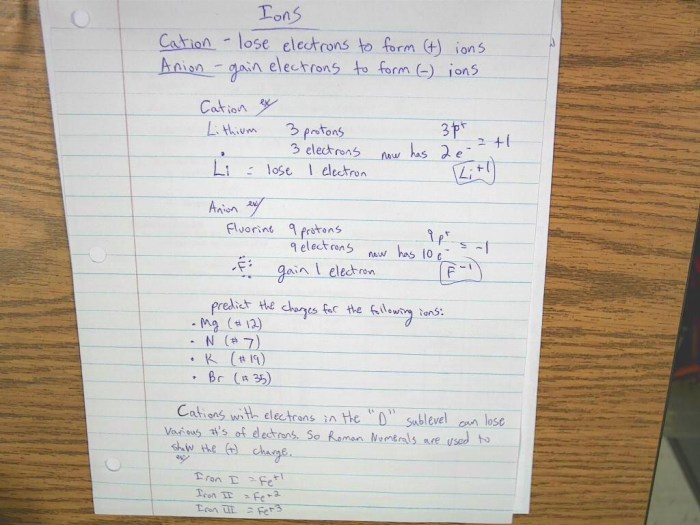 Ions
Cation - lose electrons to form (+) ions
Anion - gain electrons to form (-) ions
Cation ex/
Lithium 3 protons 3p+
3 electrons now has 2e- = +1
Li = lose 1 electron Li+1
Anion ex/
Fluorine 9 protons 9p+
9 electrons now has 10e- = -1
F: gain 1 electron F-1
predict the charges for the following ions:
• Mg (#12)
• N (#7)
• K (#19)
• Br (#35)
Cations with electrons in the "D" sublevel can lose
various #'s of electrons. So Roman Numerals are used to
show the (+) charge.
ex/
Iron I = Fe+1
Iron II = Fe+2
Iron III = Fe+3